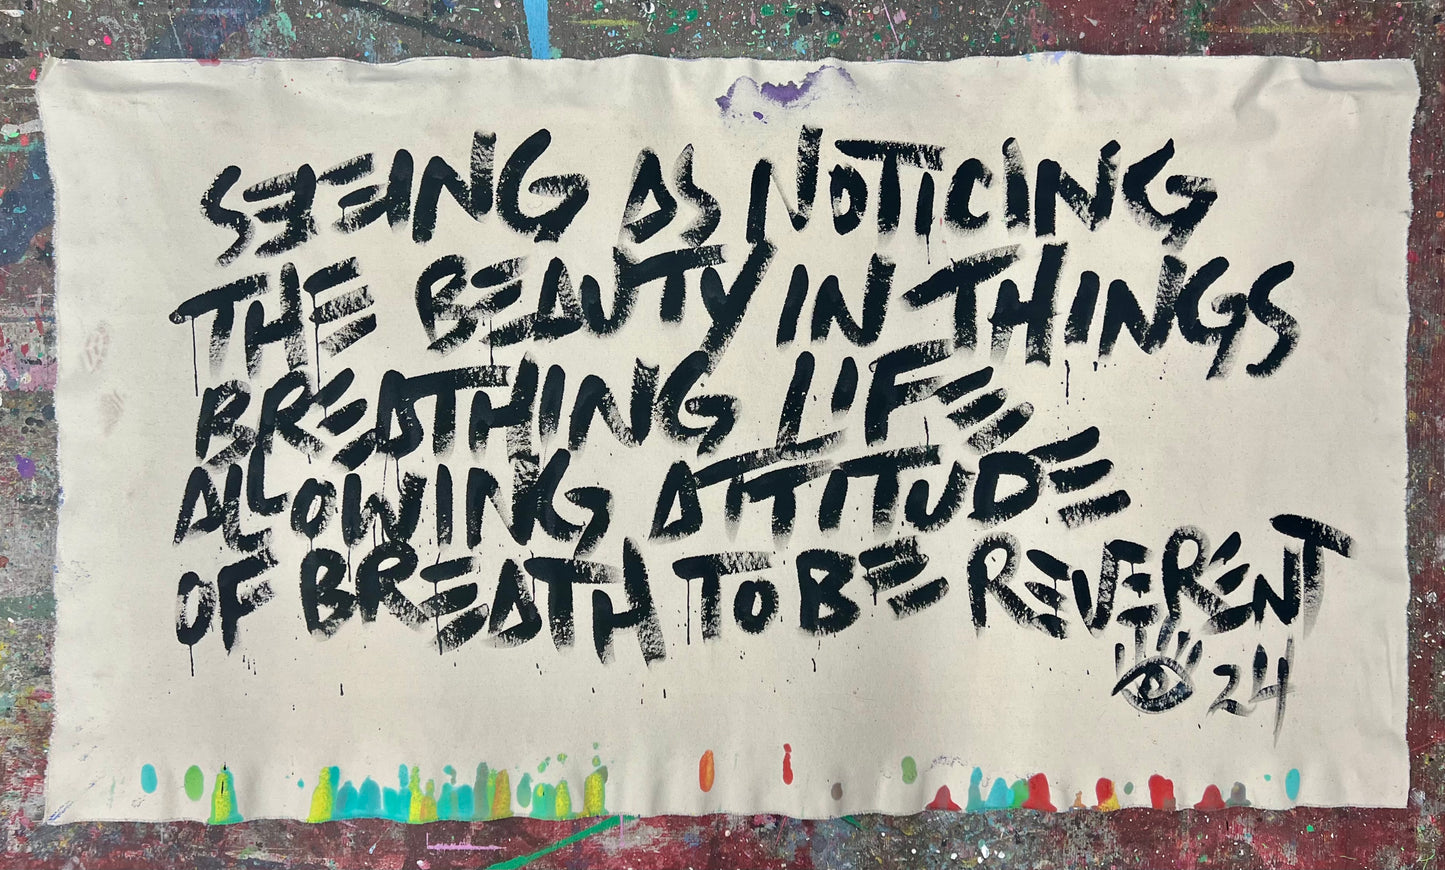 SEEING AS NOTICING
THE BEAUTY IN THINGS
BREATHING LIFE
ALLOWING ATTITUDE
OF BREATH TO BE REVERENT
24